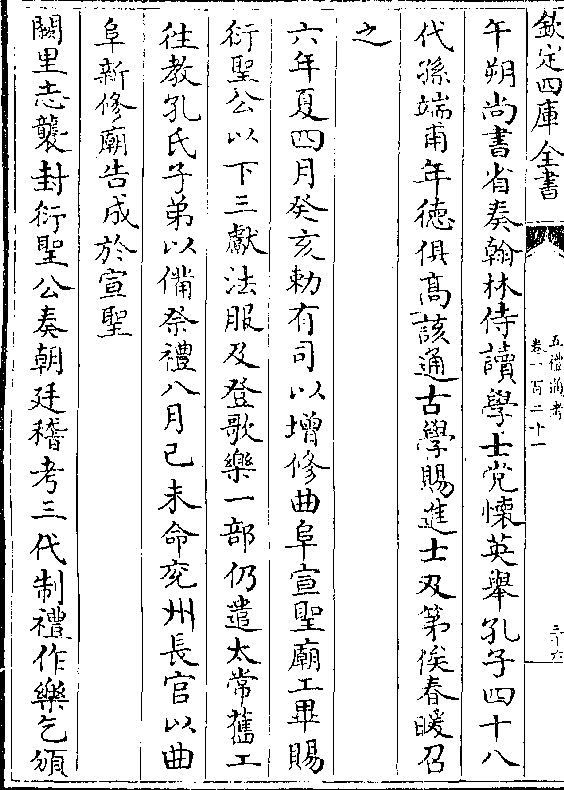 欽定四庫全書
五禮通考
卷一百二十一
三十六
午朔尚書省奏翰林侍讀學士党懷英舉孔子四十八
代孫端甫年徳俱髙該通古學賜進士及第俟春暖召
之
六年夏四月癸亥勅有司以增修曲阜宣聖廟工畢賜
衍聖公以下三獻法服及登歌樂一部仍遣太常舊工
往教孔氏子弟以備祭禮八月己未命兖州長官以曲
阜新修廟告成於宣聖
闕里志襲封衍聖公奏朝廷稽考三代制禮作樂乞頒